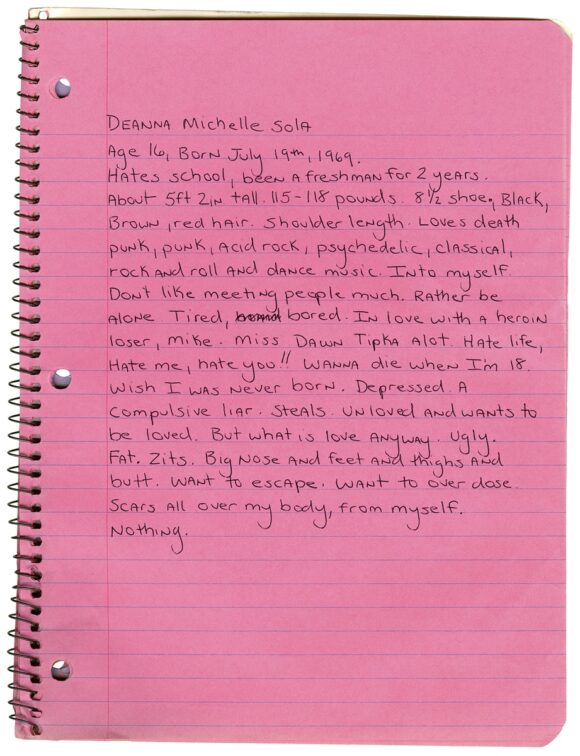 DEANNA Michelle Sola
Age 16, Born July 19th, 1969.
Hates school, been a freshman for 2 years.
About 5ft 2in tall. 115-118 pounds. 8½ shoe. Black,
Brown, red hair. Shoulder length. Loves death
punk, punk, acid rock, psychedelic, classical,
rock and roll and dance music. Into myself.
Don't like meeting people much. Rather be
alone Tired, bored. In love with a heroin
loser, mike. Miss Dawn Tipka alot. Hate life,
Hate me, hate you!! Wanna die when I'm 18.
Wish I was never born. Depressed. A
compulsive liar. Steals. Unloved and wants to
be loved. But what is love anyway. Ugly.
Fat. Zits. Big nose and feet and thighs and
butt. Want to escape. Want to over dose.
Scars all over my body, from myself.
Nothing.